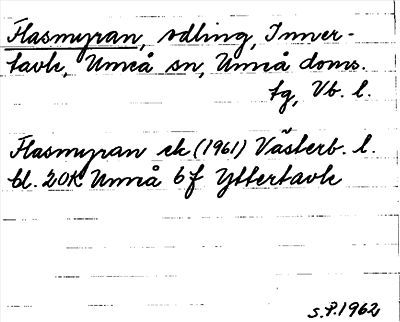 Flasmyran, odling, Inner-
tavle, Umeå sn, Umeå doms.
tg, Vb. l.
Flasmyran ek (1961) Västerb. l.
bl. 20K Umeå 6f Yttertavle
S.P. 1962